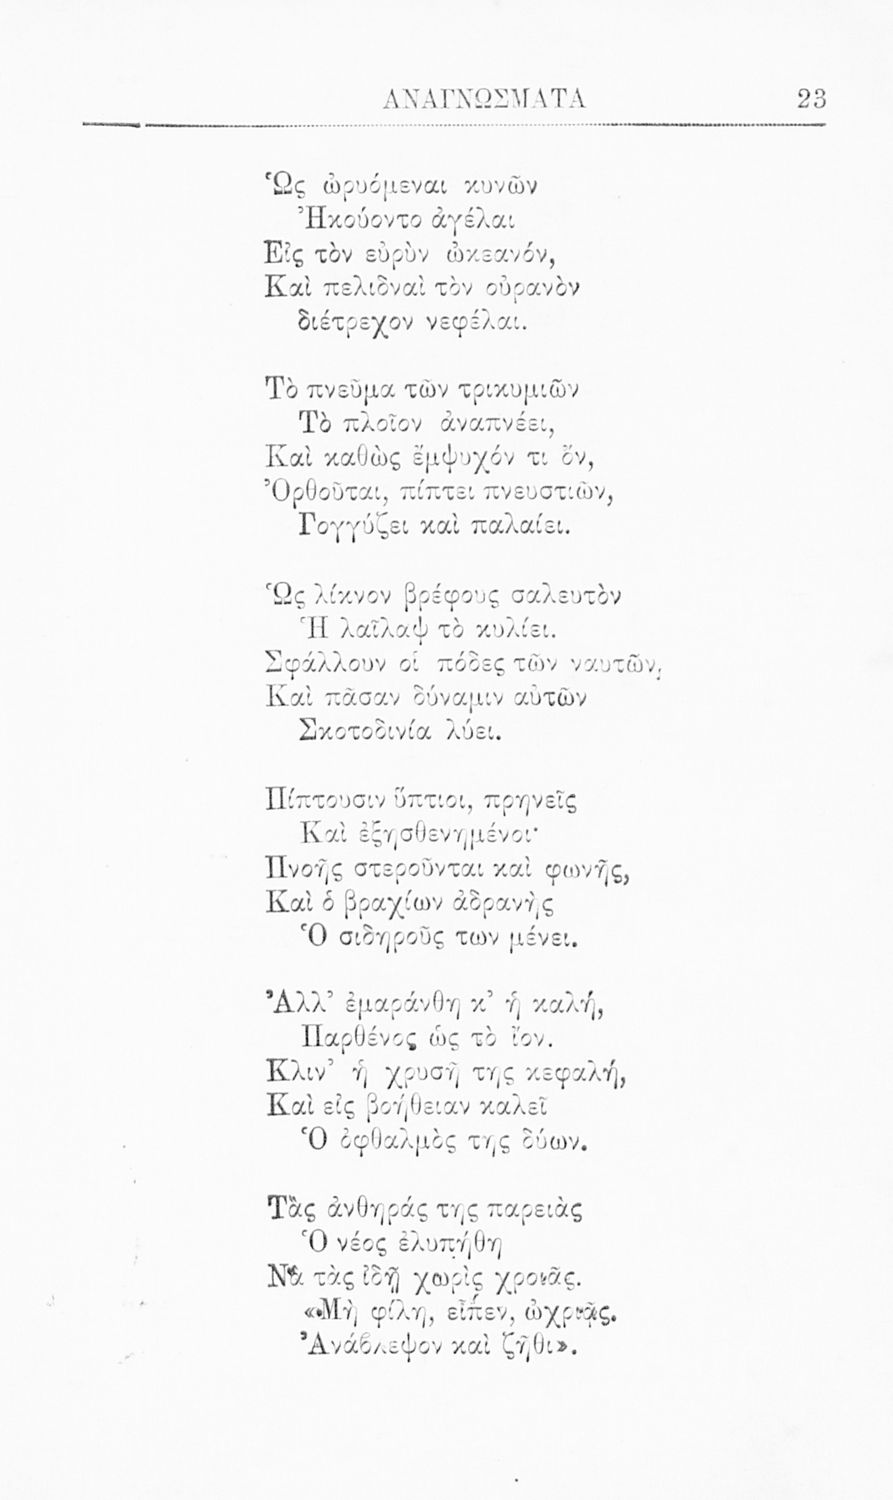 ΑΝΑΓΝΩΣΜΑΤΑ 23
Ὡς ὠρυόμεναι κυνῶν
Ἠκούοντο ἀγέλαι
Εἰς τὸν εὐρὺν ὠκεανόν,
Καὶ πελιδναὶ τὸν οὐρανὸν
διέτρεχον νεφέλαι.
Τὸ πνεῦμα τῶν τρικυμιῶν
Τὸ πλοῖον ἀναπνέει,
Καὶ καθὼς ἔμψυχόν τι ὄν,
Ὀρθοῦται, πίπτει πνευστιῶν,
Γογγύζει καὶ παλαίει.
Ὡς λίκνον βρέφους σαλευτὸν
Ἡ λαῖλαψ τὸ κυλίει.
Σφάλλουν οἱ πόδες τῶν ναυτῶν,
Καὶ πᾶσαν δύναμιν αὐτῶν
Σκοτοδινία λύει.
Πίπτουσιν ὕπτιοι, πρηνεῖς
Καὶ ἐξησθενημένοι·
Πνοῆς στεροῦνται καὶ φωνῆς,
Καὶ ὁ βραχίων ἀδρανὴς
Ὁ σιδηροῦς των μένει.
Ἀλλ’ ἐμαράνθη κ’ ἡ καλή,
Παρθένος ὡς τὸ ἴον.
Κλιν’ ἡ χρυσῆ της κεφαλή,
Καὶ εἰς βοήθειαν καλεῖ
Ὁ ὀφθαλμὸς της δύων.
Τὰς ἀνθηράς της παρειὰς
Ὁ νέος ἐλυπήθη
Νὰ τὰς ἰδῇ χωρὶς χροιᾶς.
«Μὴ φίλη, εἶπεν, ὠχριᾷς.
Ἀνάβλεψον καὶ ζῆθι».